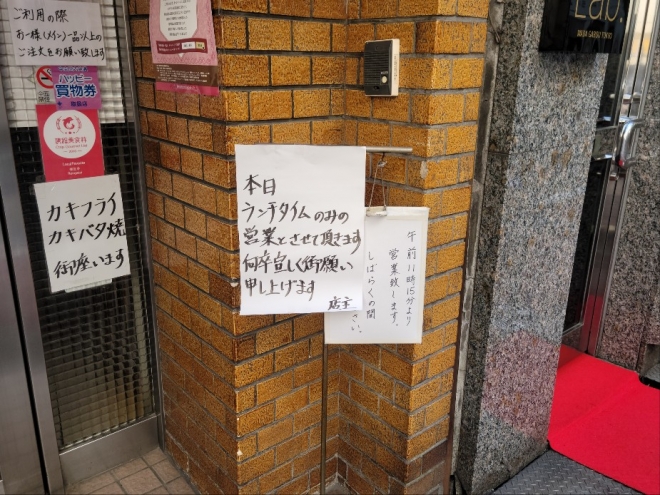 ご利用の際
お一様(メイン)一品以上の
ご注文をお願い致します
ハッピー
買物券
カキフライ
カキバタ焼
御座います
本日
ランチタイムのみの
営業とさせて頂きます
何卒宜しく御願い
申し上げます
店主
午前11時15分より
営業致します。
しばらくの間
さい。
Lab.